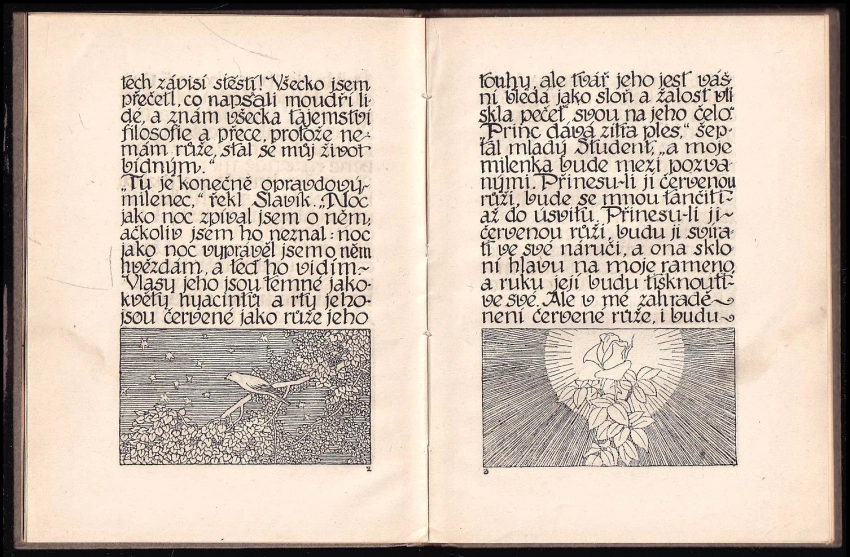 těch závisí štěstí! Všecko jsem
přečetl, co napsali moudří li-
dé, a znám všecka tajemství
filosofie a přece, protože ne-
mám růže, stal se můj život
bídným."
„Tu je konečně opravdový-
milenec," řekl Slavík. „Noc
jako noc zpíval jsem o něm,
ačkoliv jsem ho neznal: noc
jako noc vyprávěl jsem o něm
hvězdám, a teď ho vidím~
Vlasy jeho jsou temné jako-
květy hyacintu a rty jeho-
jsou červené jako růže jeho
2
touhy, ale tvář jeho jest váš-
ní bledá jako sloň a žalost vti
skla pečeť svou na jeho čelo."
„Princ dává zítra ples," šep-
tal mladý Student, „a moje
milenka bude mezi pozva-
nými. Přinesu-li jí červenou
růži, bude se mnou tančiti-
až do úsvitu. Přinesu-li jí~
červenou růži, budu ji svíra-
ti ve své náruči, a ona sklo
ní hlavu na moje rameno
a ruku její budu tisknouti-
ve své. Ale v mé zahradě~
není červené růže, i budu~
3